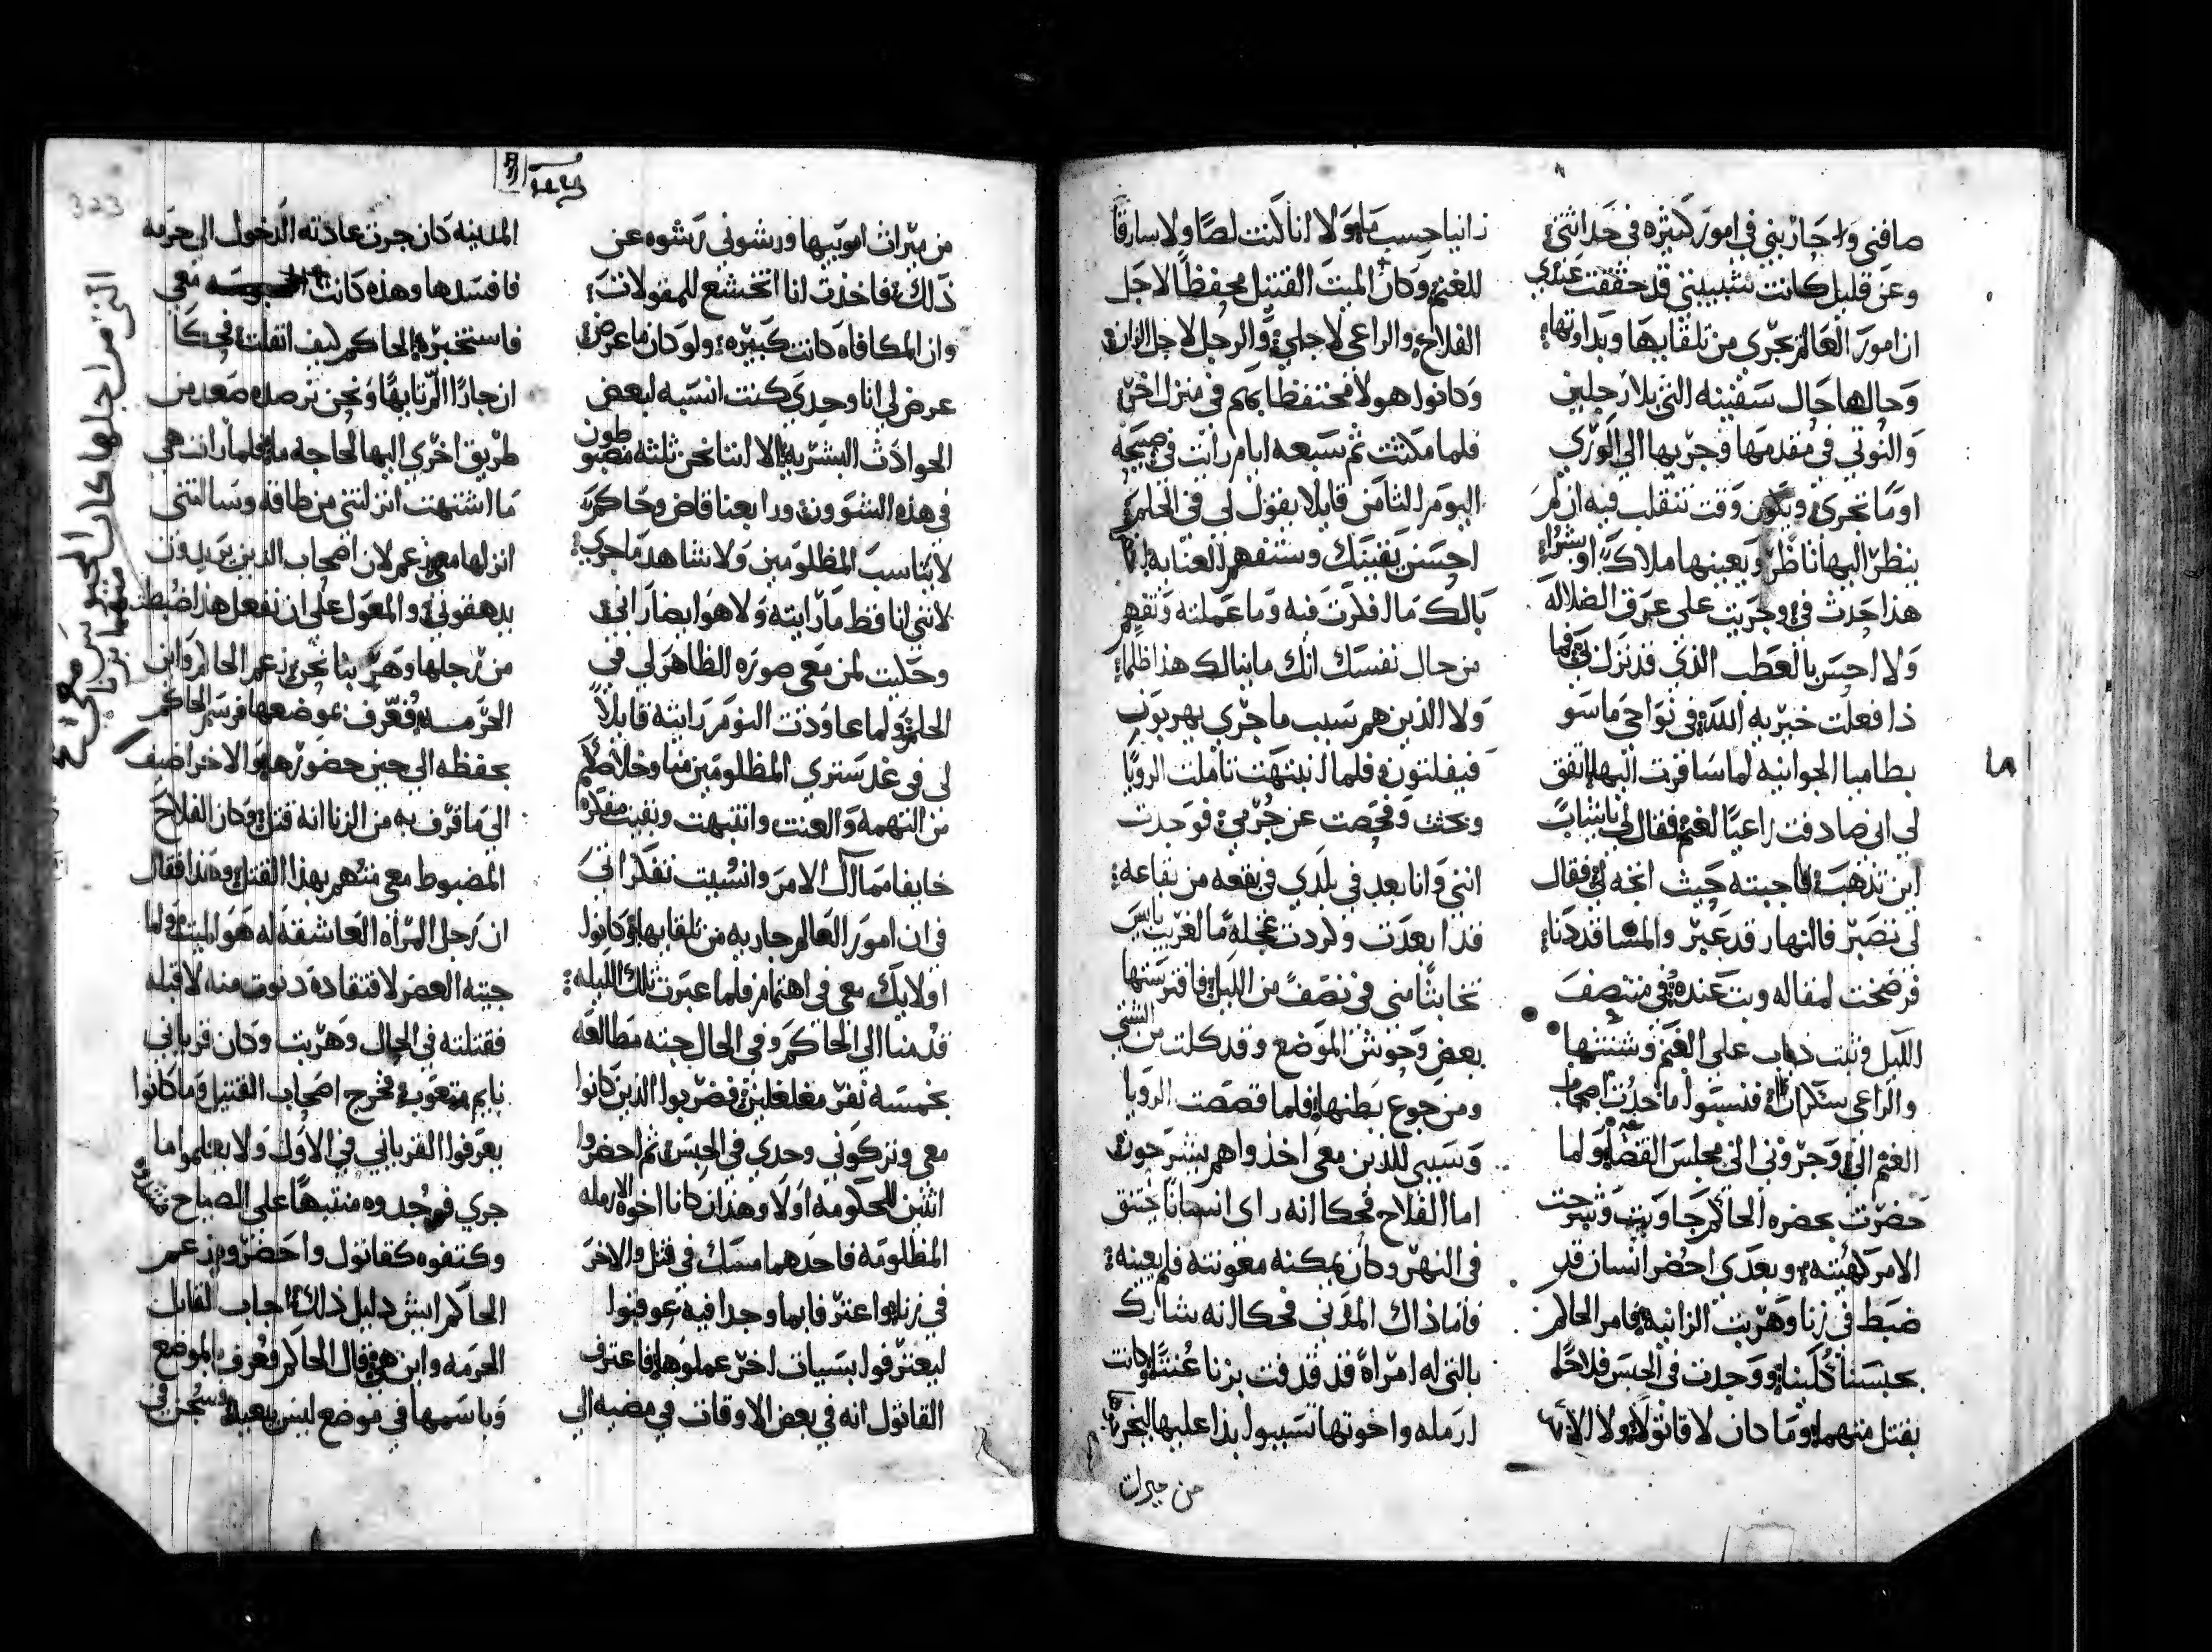 صافني واجازبني في امور كثيره في حداثتي
وعن قليل كانت شبيبتي قد حققت عندي
ان امور العالم تجري من تلقا بها وبذاوتها
وحالها حال سفينه التي بلا رجلين
والنوتي في مقدمها وجريها الي الوري
اوما تجري ويكون وقت تنقلب فيه ان لم
ينظر اليها ناظر ويعينها ملاك او بشر
هذا حدث في وجريت على عرق الضلاله
ولا احس بالعطب الذي قد نزل بي فيما
ذا فعلت خيريه الله في نواحي ماسو
بطاميا الجوانيه لما سافرت اليها اتفق
لي اني صادفت راعيا لغنم فقال لي يا شاب
اين تذهب فاجبته حيث اتجه لي فقال
لي تصبر فالنهار قد عبر والمسا قد دنا
فرضخت لمقاله وبت عنده في منتصف
الليل وثلت ذياب على الغنم وشتتتها
والراعي سكران فنسبوا ما حدث اصحاب
الغنم الي وجروني الى مجلس القضا ولما
حضرت بحضره الحاكم جاوبت وشرحت
الامر كهيته وبعدي احضر انسان قد
ضبط في زنا وهربت الزانيه فامر الحاكم
بحبسنا كلينا ووجدت في الحبس فلاحا
بقتل متهما وما كان لا قاتولا ولا الاتي
زانيا حسب ما ولا انا كنت لصا ولا سارقا
للغنم وكان الميت القتيل محفظا لاجل
الفلاح والراعي لاجلي والرجل لاجل الزاني
وكانوا هولا محتفظا بهم في منزل اخر
فلما مكثت ثم سبعه ايام رايت في صبيحه
اليوم الثامن قايلا يقول لي في الحلم
احسن يقينك وستفهم العنايه
بالك ما افكرت فيه وما عملته وتفهم
من حال نفسك انك ما ينالك هذا ظلما
ولا الذين هم سبب ما جري يهربون
فيفلتون فلما انتبهت تاملت الرويا
وبحثت وفحصت عن جرمي فوجدت
انني وانا بعد في بلدي في بقعه من بقاعه
قد ابعدت وطردت عجله ما لغريب بايس
تخابثا مني في نصف من الليل فافترستها
بعض وحوش الموضع وقد كلت من السعي
ومن جوع بطنها فلما قصصت الرويا
وسببي للذين معي اخذوا هم يشرحون
اما الفلاح فحكا انه راى انسانا يختنق
في النهر وكان يمكنه معونته فلم يعينه
فاما ذاك المدني فحكا انه شارك
بالتي له امراة قد قذفت بزنا عنتا وكانت
ارمله واخوتها تسببوا بذا عليها ليحرموها
من ميراث
من ميراث ابويها ورشوني رشوه عن
ذلك فاخذت انا اتخشع للمقولات
وان المكافاه كانت كبيره ولو كان ما عرض
عرض لي انا وحدي كنت انسبه لبعض
الحوادث البشريه الا اننا نحن ثلثه مضبوطون
في هذه الشوون ورابعنا قاض وحاكم
لا يناسب المظلومين ولا شاهد ما جري
لانني انا قط ما رايته ولا هو ايضا راني
وحكيت لمن معي صوره الظاهر لي في
الحلم ولما عاودت النوم رايته قايلا
لي في غد ستري المظلومين منا وخلاصهم
من التهمه والعنت وانتبهت وبقيت مفكرا
خايفا مما ال الامر وانسيت تفكراتي
في ان امور العالم جاريه من تلقا بها وكانوا
اولايك معي في اهتمام فلما عبرت تلك الليله
قدمنا الي الحاكم وفي الحال جته مطالعه
بخمسه نفر مغلغلين فضربوا الذين كانوا
معي وتركوني وحدي في الحبس ثم احضروا
اثنين للحكومه اولا وهذان كانا اخوه الارمله
المظلومه فاحدهما مسك في قتل والاخر
في زنا واعتر فابما وجدا فيه عوقبوا
ليعترفوا بسيات اخر عملوها فاعترف
القاتول انه في بعض الاوقات في مضيه الي
المدينه كان جرت عادته الدخول الى حرمه
فافسدها وهذه كانت معي
فاستخبره الحاكم كيف انفلت فحكا
ان جارا لزنا بها ونحن نرصده صعد من
طريق اخري اليها لحاجه ما فلما رات هي
ما اشتهت انزلتني من طاقه وسالتني
انزلها معي زعم لان اصحاب الدين يريدون
يدهقوني والمعول على ان نفعل هذا ضبطت
من رجلها وهربنا نحن زعم الحاكم واين
الحرمه فعرف بموضعها فرسم الحاكم
بحفظه الي حين حضورها والاخر اضيف
الي ما قرف به من الزنا انه قتل وكان الفلاح
المضبوط معي متهم بهذا القتل وهكذا فقال
ان رجل المراه العاشقه له هو الميت ولما
جيته العصر لافتقاده دنوت منه لاقبله
فقتلته في الحال وهربت وكان قرباني
نايم متعوب فخرج اصحاب القتيل وما كانوا
يعرفوا القرباني في الاول ولا يعلموا ما
جري فوجدوه منتبها على الصياح
وكتفوه كقاتول واحضروه زعم
الحاكم ايش دليل ذلك اجاب القايل
الحرمه واين هي قال الحاكم فعرف بالموضع
وباسمها في موضع ليس ببعيد وسجن في
التي من اجلها كان المحبوس معي
متهما بزنا
323